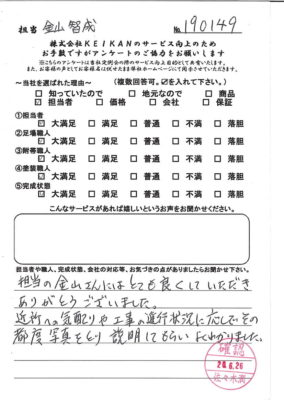 担当 金山 智成 No.190149
株式会社KEIKANのサービス向上のため
お手数ですがアンケートのご協力をお願いします
※こちらのアンケートは当社定例会の際のサービス向上目的として共有いたします。
～当社を選ばれた理由～ (複数回答可。☑を入れて下さい。)
□ 知っていたので □ 地元なので □ 商品
☑ 担当者 □ 価格 □ 会社 □ 保証
①担当者
☑ 大満足 □ 満足 □ 普通 □ 不満 □ 落胆
②足場職人
☑ 大満足 □ 満足 □ 普通 □ 不満 □ 落胆
③附帯職人
☑ 大満足 □ 満足 □ 普通 □ 不満 □ 落胆
④塗装職人
☑ 大満足 □ 満足 □ 普通 □ 不満 □ 落胆
⑤完成状態
☑ 大満足 □ 満足 □ 普通 □ 不満 □ 落胆
こんなサービスがあれば嬉しいというお声をお聞かせください。
担当者や職人、完成状態、会社の対応等、お気づきの点がありましたらお聞かせ下さい。
担当の金山さんにはとても良くしていただき
ありがとうございました。
近所への気配りや工事の進行状況に応じてその
都度写真をとり説明してもらいよくわかりました。
確認
2 .6.26
佐々木